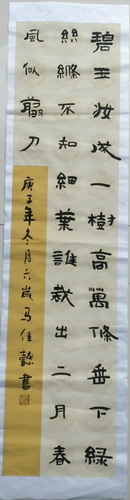 碧玉妝成一樹高萬條垂下綠
絲絛不知細葉誰裁出二月春
風似剪刀
庚子年冬月六歲马佳懿書